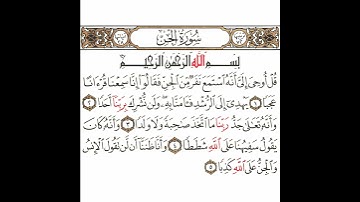 سُورَةُ الْجِنِّ
بِسْمِ اللَّهِ الرَّحْمَٰنِ الرَّحِيمِ
قُلْ أُوحِيَ إِلَيَّ أَنَّهُ اسْتَمَعَ نَفَرٌ مِّنَ الْجِنِّ فَقَالُوا إِنَّا سَمِعْنَا قُرْءَانًا
عَجَبًا ١ يَهْدِي إِلَى الرُّشْدِ فَـَٔامَنَّا بِهِ وَلَن نُّشْرِكَ بِرَبِّنَا أَحَدًا ٢
وَأَنَّهُ تَعَالَىٰ جَدُّ رَبِّنَا مَا اتَّخَذَ صَاحِبَةً وَلَا وَلَدًا ٣ وَأَنَّهُ كَانَ
يَقُولُ سَفِيهُنَا عَلَى اللَّهِ شَطَطًا ٤ وَأَنَّا ظَنَنَّا أَن لَّن تَقُولَ الْإِنسُ
وَالْجِنُّ عَلَى اللَّهِ كَذِبًا ٥